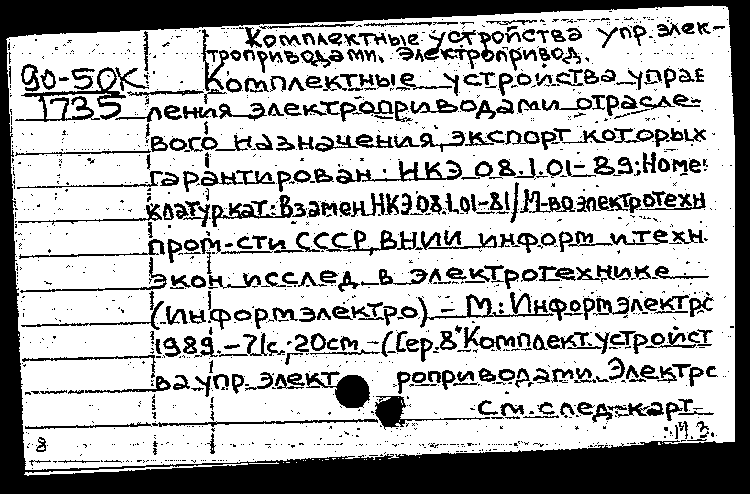 Комплектные устройства упр. элек-
троприводами. Электропривод.
90-50К
1735
Комплектные устройства управ
ления электроприводами отрасле-
вого назначения, экспорт которых
гарантирован: НКЭ 08.1.01-89; Номе
клатур. кат.: Взамен НКЭ 08.1.01-81 / М-во электротехн
пром-сти СССР, ВНИИ информ. и техн.
экон. исслед. в электротехнике
(Информэлектро). - М.: Информэлектро
1989. - 71 с.; 20 cm. - (Сер. 8 "Комплект. устройст
ва упр. электроприводами. Электро
См. след. карт.
8